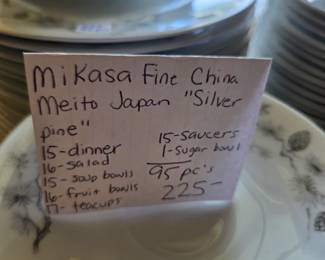 Mikasa Fine China
Meito Japan "Silver
pine"
15-dinner
16-salad
15-soup bowls
16-fruit bowls
17-teacups
15-saucers
1-sugar bowl
95 pc's
225-